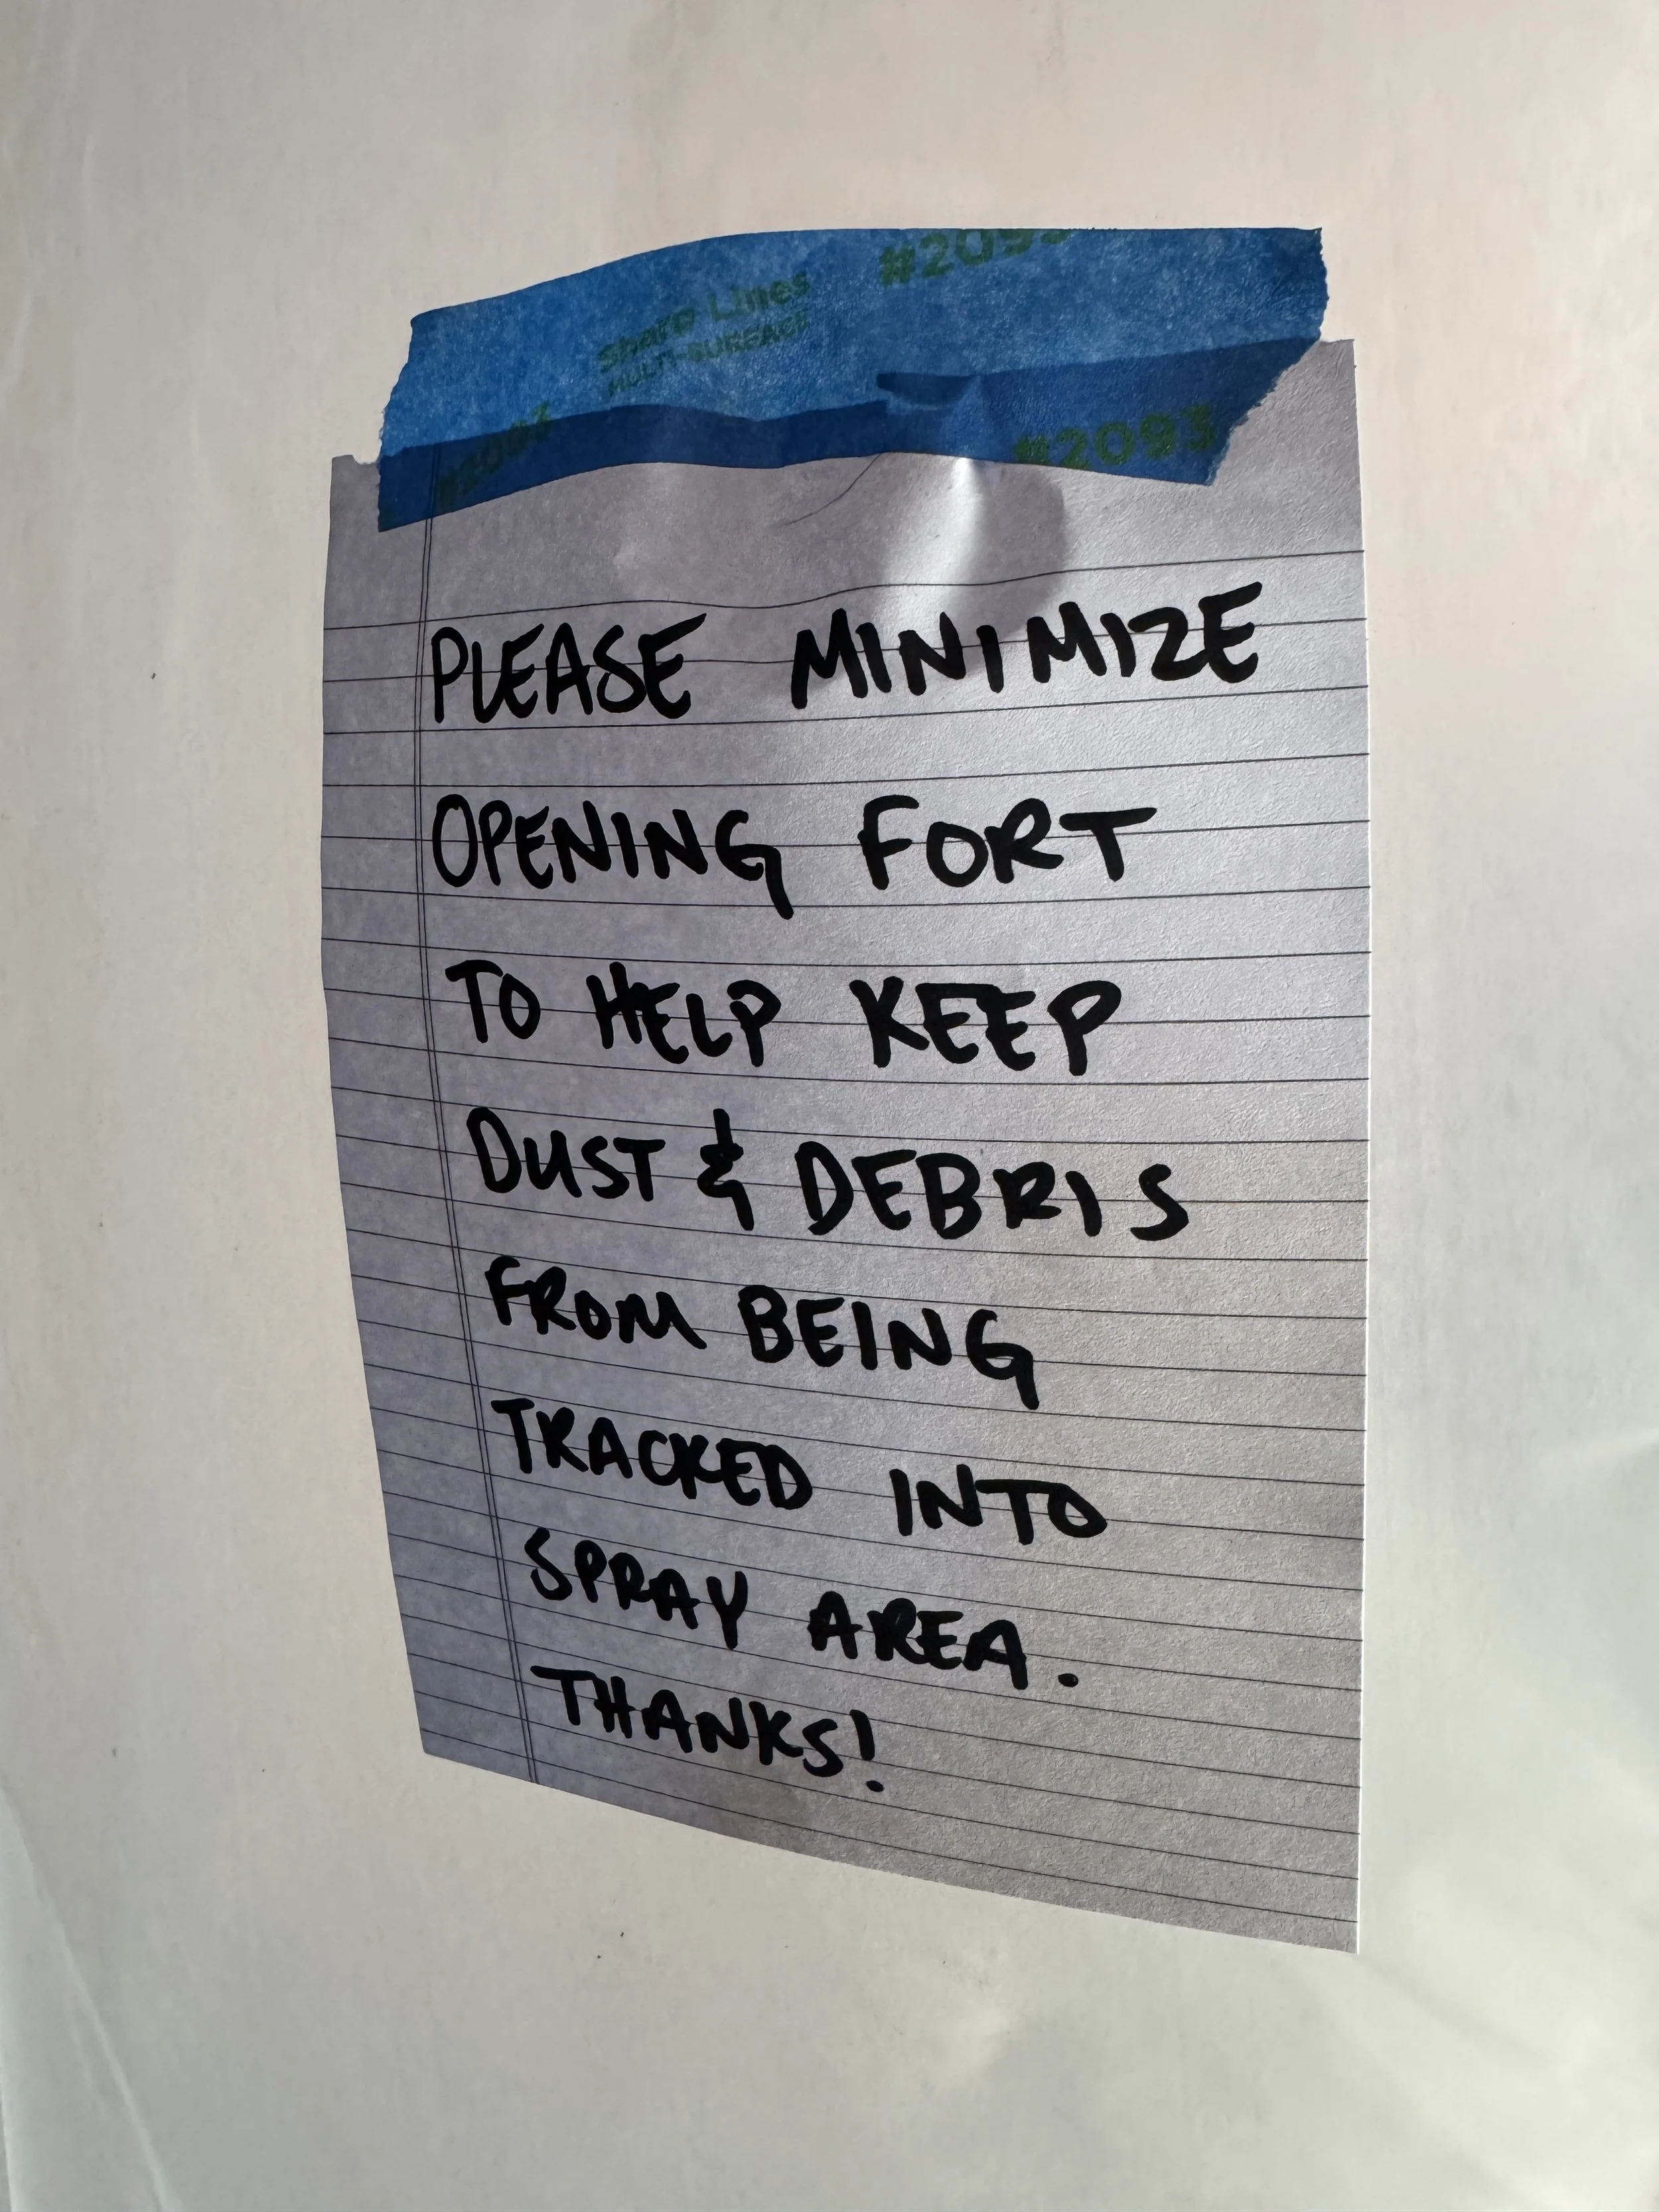 #2093
Sharp Lines
MULTI-SURFACE
#2093
#2093
PLEASE MINIMIZE
OPENING FORT
TO HELP KEEP
DUST & DEBRIS
FROM BEING
TRACKED INTO
SPRAY AREA.
THANKS!